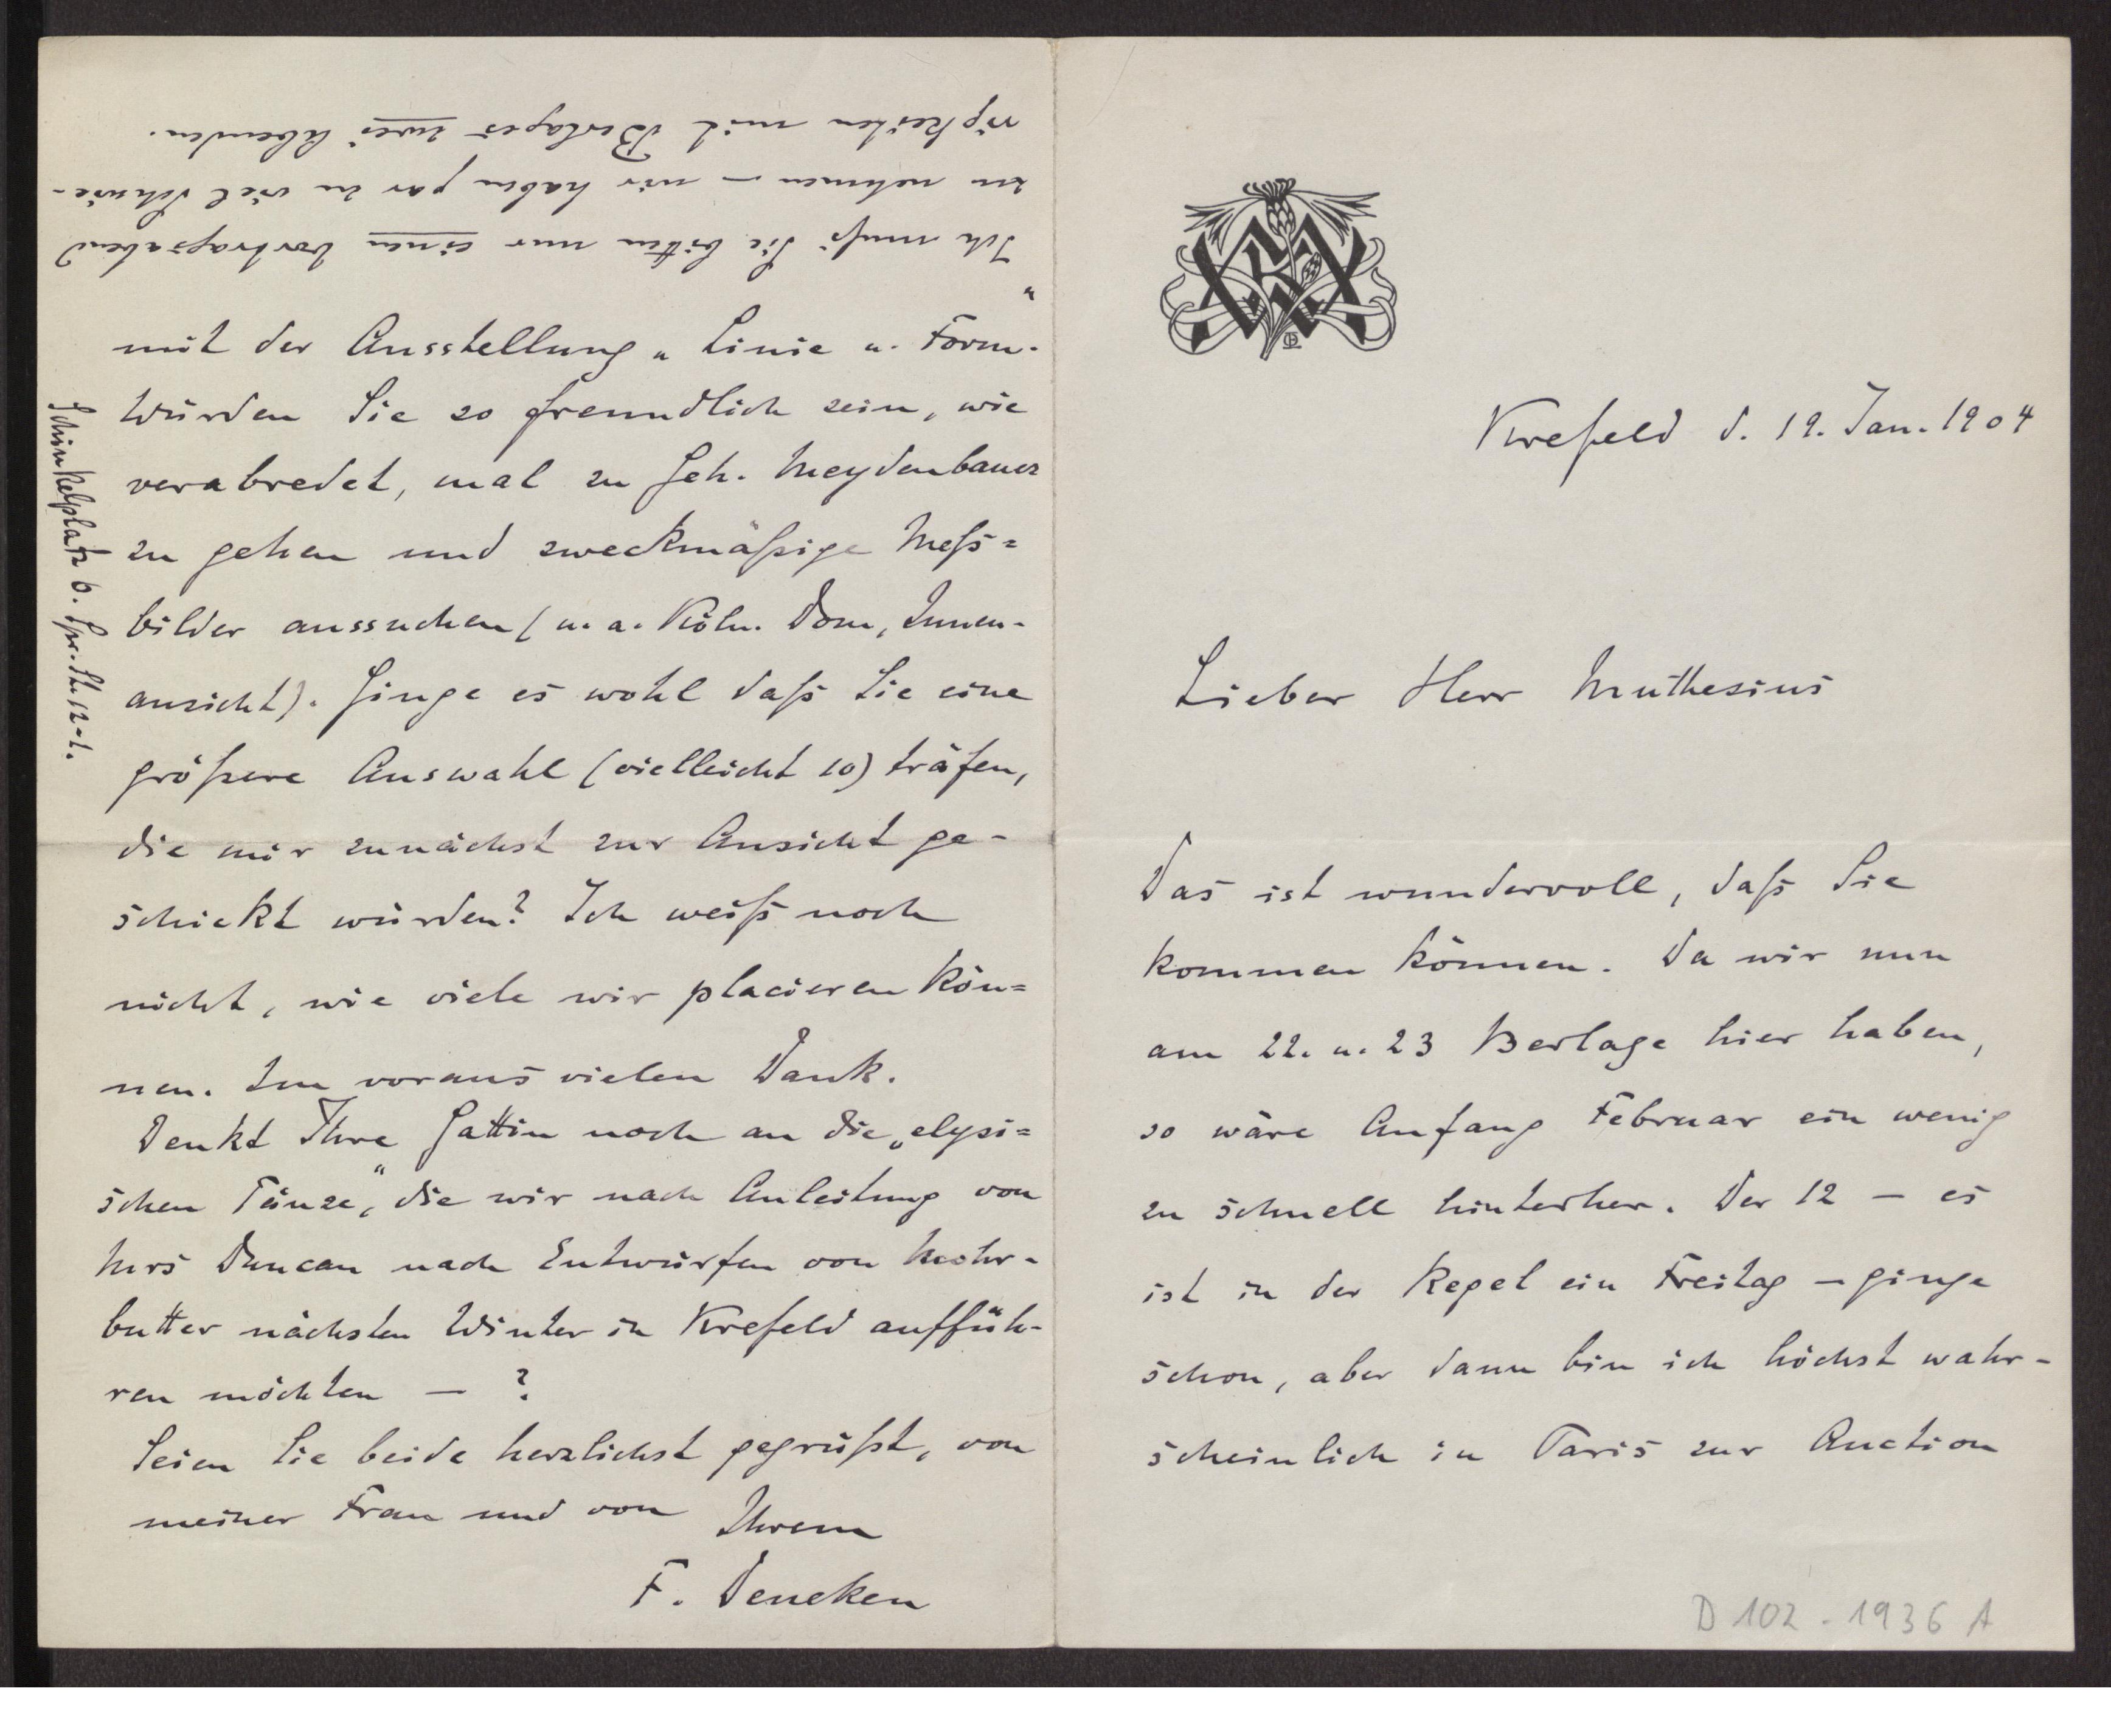 Krefeld d. 19. Jan. 1904
Lieber Herr Muthesius
Das ist wundervoll, daß Sie
kommen können. Da wir nun
am 22. u. 23 Berlage hier haben,
so wäre Anfang Februar ein wenig
zu schnell hinterher. Der 12 — es
ist in der Regel ein Freitag — ginge
schon, aber dann bin ich höchst wahr-
scheinlich in Paris zur Auction
D 102 - 1936 A
mit der Ausstellung „Linie u. Form".
Würden Sie so freundlich sein, wie
verabredet, mal zu Geh. Meydenbauer
zu gehen und zweckmäßige Meß=
bilder aussuchen (u. a. Köln. Dom, Innen-
ansicht). Ginge es wohl daß Sie eine
größere Auswahl (vielleicht 10) träfen,
die mir zunächst zur Ansicht ge-
schickt würden? Ich weiß noch
nicht, wie viele wir placieren kön=
nen. Im voraus vielen Dank.
Denkt Ihre Gattin noch an die „elysi=
schen Tänze", die wir nach Anleitung von
Mrs Duncan nach Entwürfen von Mohr-
butter nächsten Winter in Krefeld auffüh-
ren möchten — ?
Seien Sie beide herzlichst gegrüßt, von
meiner Frau und von Ihrem
F. Deneken
Ich muß Sie bitten nur einen Vortragsabend
zu nehmen — wir haben gar zu viel Schwie-
rigkeiten mit Berlages zwei Abenden.
Schinkelplatz 6. Spr. St. 12-1.